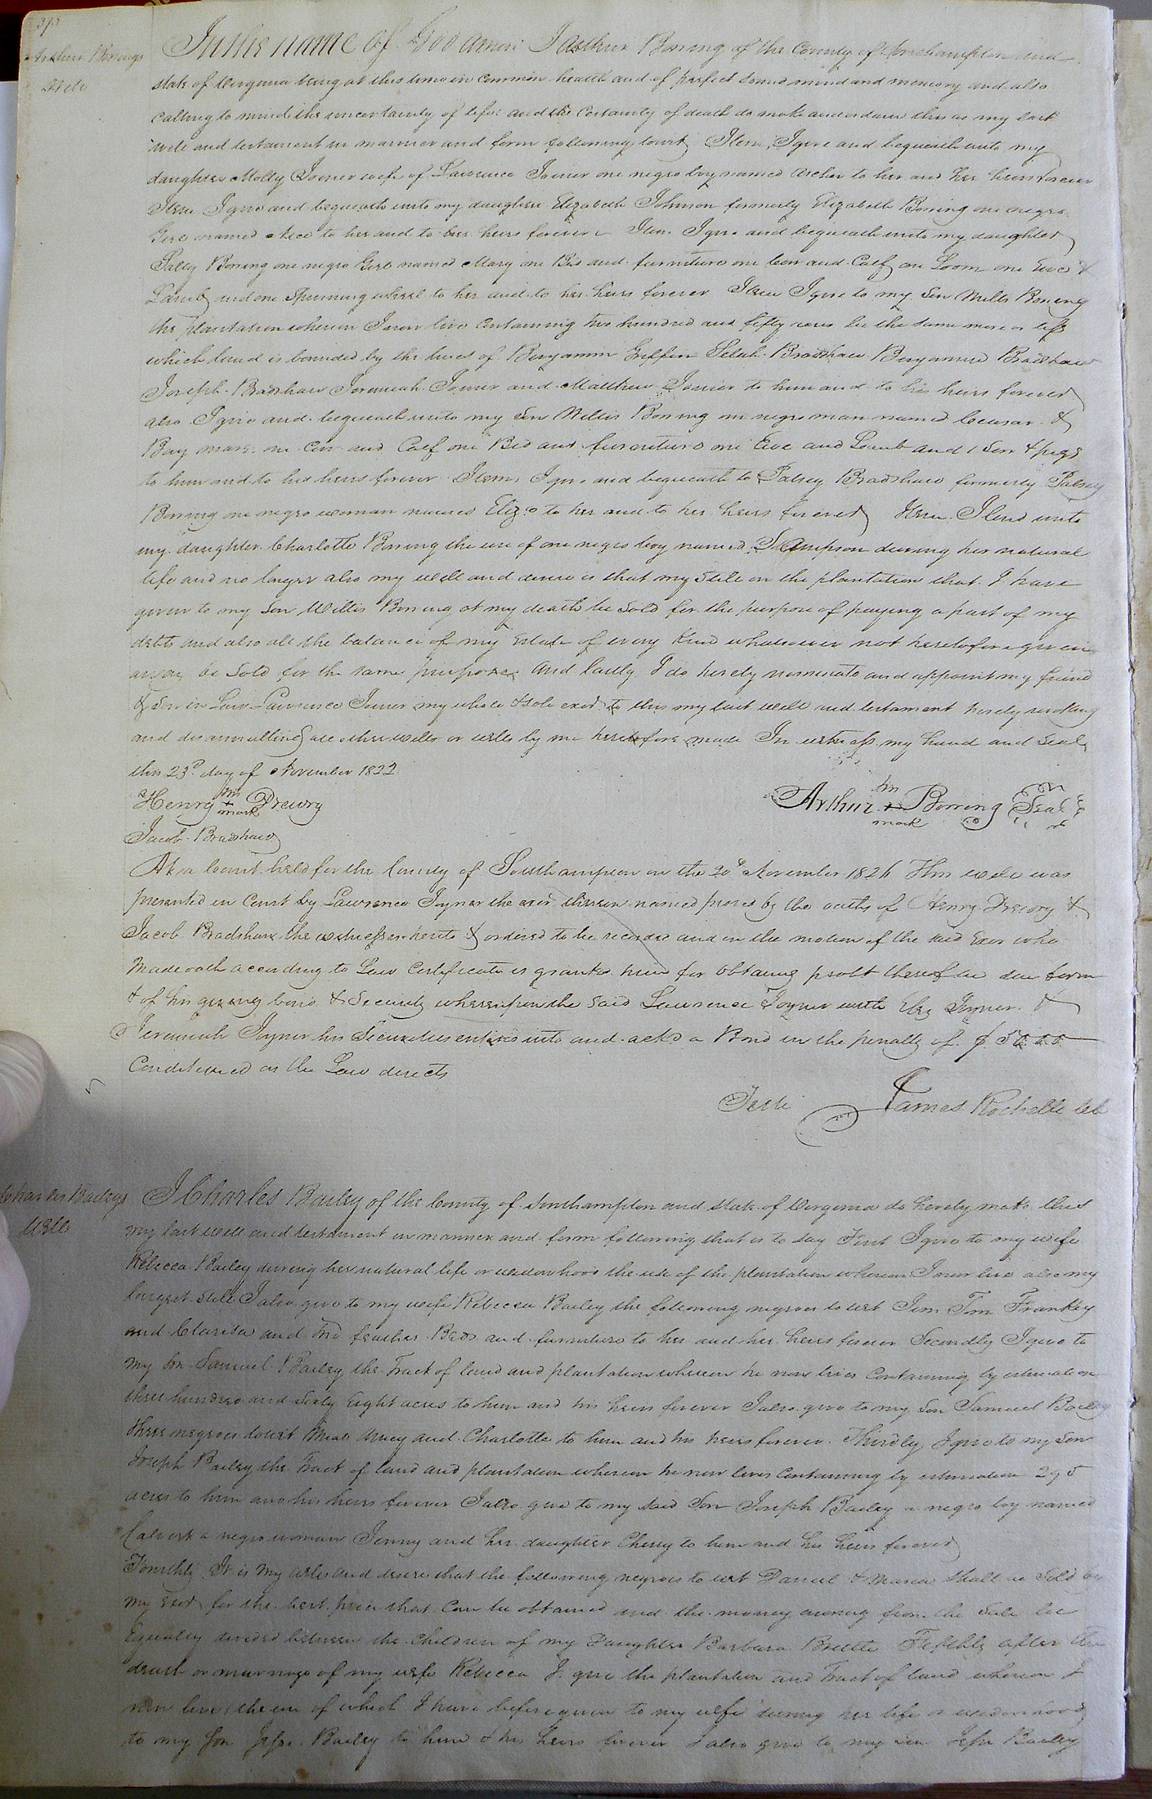 Arthur Boning's
Will
In the name of God amen I Arthur Boning of the County of Southampton and
state of Virginia being at this time in common health and of perfect sound mind and memory and also
calling to mind the uncertainty of life and the certainty of death do make and ordain this as my last
will and testament in manner and form following towit, Item, I give and bequeath unto my
daughter Molly Joiner wife of Lawrence Joiner one negro boy named Archer to her and her heirs forever
Item I give and bequeath unto my daughter Elizabeth Johnson formerly Elizabeth Boning one negro
Girl named to her and to her heirs forever Item I give and bequeath unto my daughter
Sally Boning one negro Girl named Mary one Bed and furniture one Cow and Calf one Loom one Ewe &
Lamb, and one Spinning wheel to her and to her heirs forever Item I give to my Son Willis Boning
the plantation wherein I now live Containing two hundred and fifty acres be the same more or less
which land is bounded by the lines of Benjamin Griffin Selah Bradshaw Benjamin Bradshaw
Joseph Bradshaw Jeremiah Joiner and Matthew Joiner to him and to his heirs forever
also I give and bequeath unto my Son Willis Boning one negro man named Ceasar &
Bay mare one Cow and Calf one Bed and furniture one Ewe and Lamb and 1 Sow & pigs
to him and to his heirs forever Item I give and bequeath to Patsey Bradshaw formerly Patsey
Boning one negro woman named Eliza to her and to her heirs forever Item I lend unto
my daughter Charlotte Boning the use of one negro boy named Sampson during her natural
life and no longer also my will and desire is that my Still on the plantation that I have
given to my Son Willis Boning at my death be Sold for the purpose of paying a part of my
debts and also all the balance of my Estate of every kind whatsoever not heretofore given
away be Sold for the same purpose, and lastly I do hereby nominate and appoint my friend
& Son in Law Lawrence Joiner my whole & Sole exor to this my last will and testament hereby revoking
and disannulling all other wills or wills by me heretofore made In witness my hand and Seal
this 23d day of November 1822
Henry his + mark Drewry
Arthur his + mark Boning Seal
Jacob Bradshaw
At a Court held for the County of Southampton on the 20th November 1826 This will was
presented in Court by Lawrence Joyner the exor therein named proved by the oaths of Henry Drewry &
Jacob Bradshaw the witnesses hereto & ordered to be recorded and on the motion of the said Exor who
made oath according to Law Certificate is granted him for obtaining probt thereof in due form
& of his giving bond & Security whereupon the said Lawrence Joyner with Joyner &
Jeremiah Joyner his Securities entered into and ackd a Bond in the penalty of $
Conditioned as the Law directs
Teste James Rochelle clk
Charles Bailey's
Will
I Charles Bailey of the County of Southampton and State of Virginia do hereby make this
my last will and testament in manner and form following that is to say First I give to my wife
Rebecca Bailey during her natural life or widowhood the use of the plantation whereon I now live also my
largest Still I also give to my wife Rebecca Bailey the following negroes to wit Jim Tom Frankey
and Clarisa and two feather Beds and furniture to her and her heirs forever Secondly I give to
my Son Samuel Bailey the Tract of land and plantation whereon he now lives Containing by estimation
three hundred and Sixty Eight acres to him and his heirs forever I also give to my Son Samuel Bailey
three negroes towit and Charlotte to him and his heirs forever. Thirdly I give to my Son
Joseph Bailey the Tract of land and plantation whereon he now lives Containing by estimation 295
acres to him and his heirs forever I also give to my said Son Joseph Bailey a negro boy named
Calvert a negro woman Jenny and her daughter Cherry to him and his heirs forever
Fourthly It is my will and desire that the following negroes to wit Daniel & Maria Shall be Sold by
my Exor for the best price that Can be obtained and the money arising from the Sale be
Equally divided between the Children of my Daughter Barbara Fifthly after the
death or marriage of my wife Rebecca I give the plantation and Tract of land whereon I
now live (the use of which I have before given to my wife during her life or widowhood)
to my Son Jesse Bailey to him & his heirs forever I also give to my Son Jesse Bailey